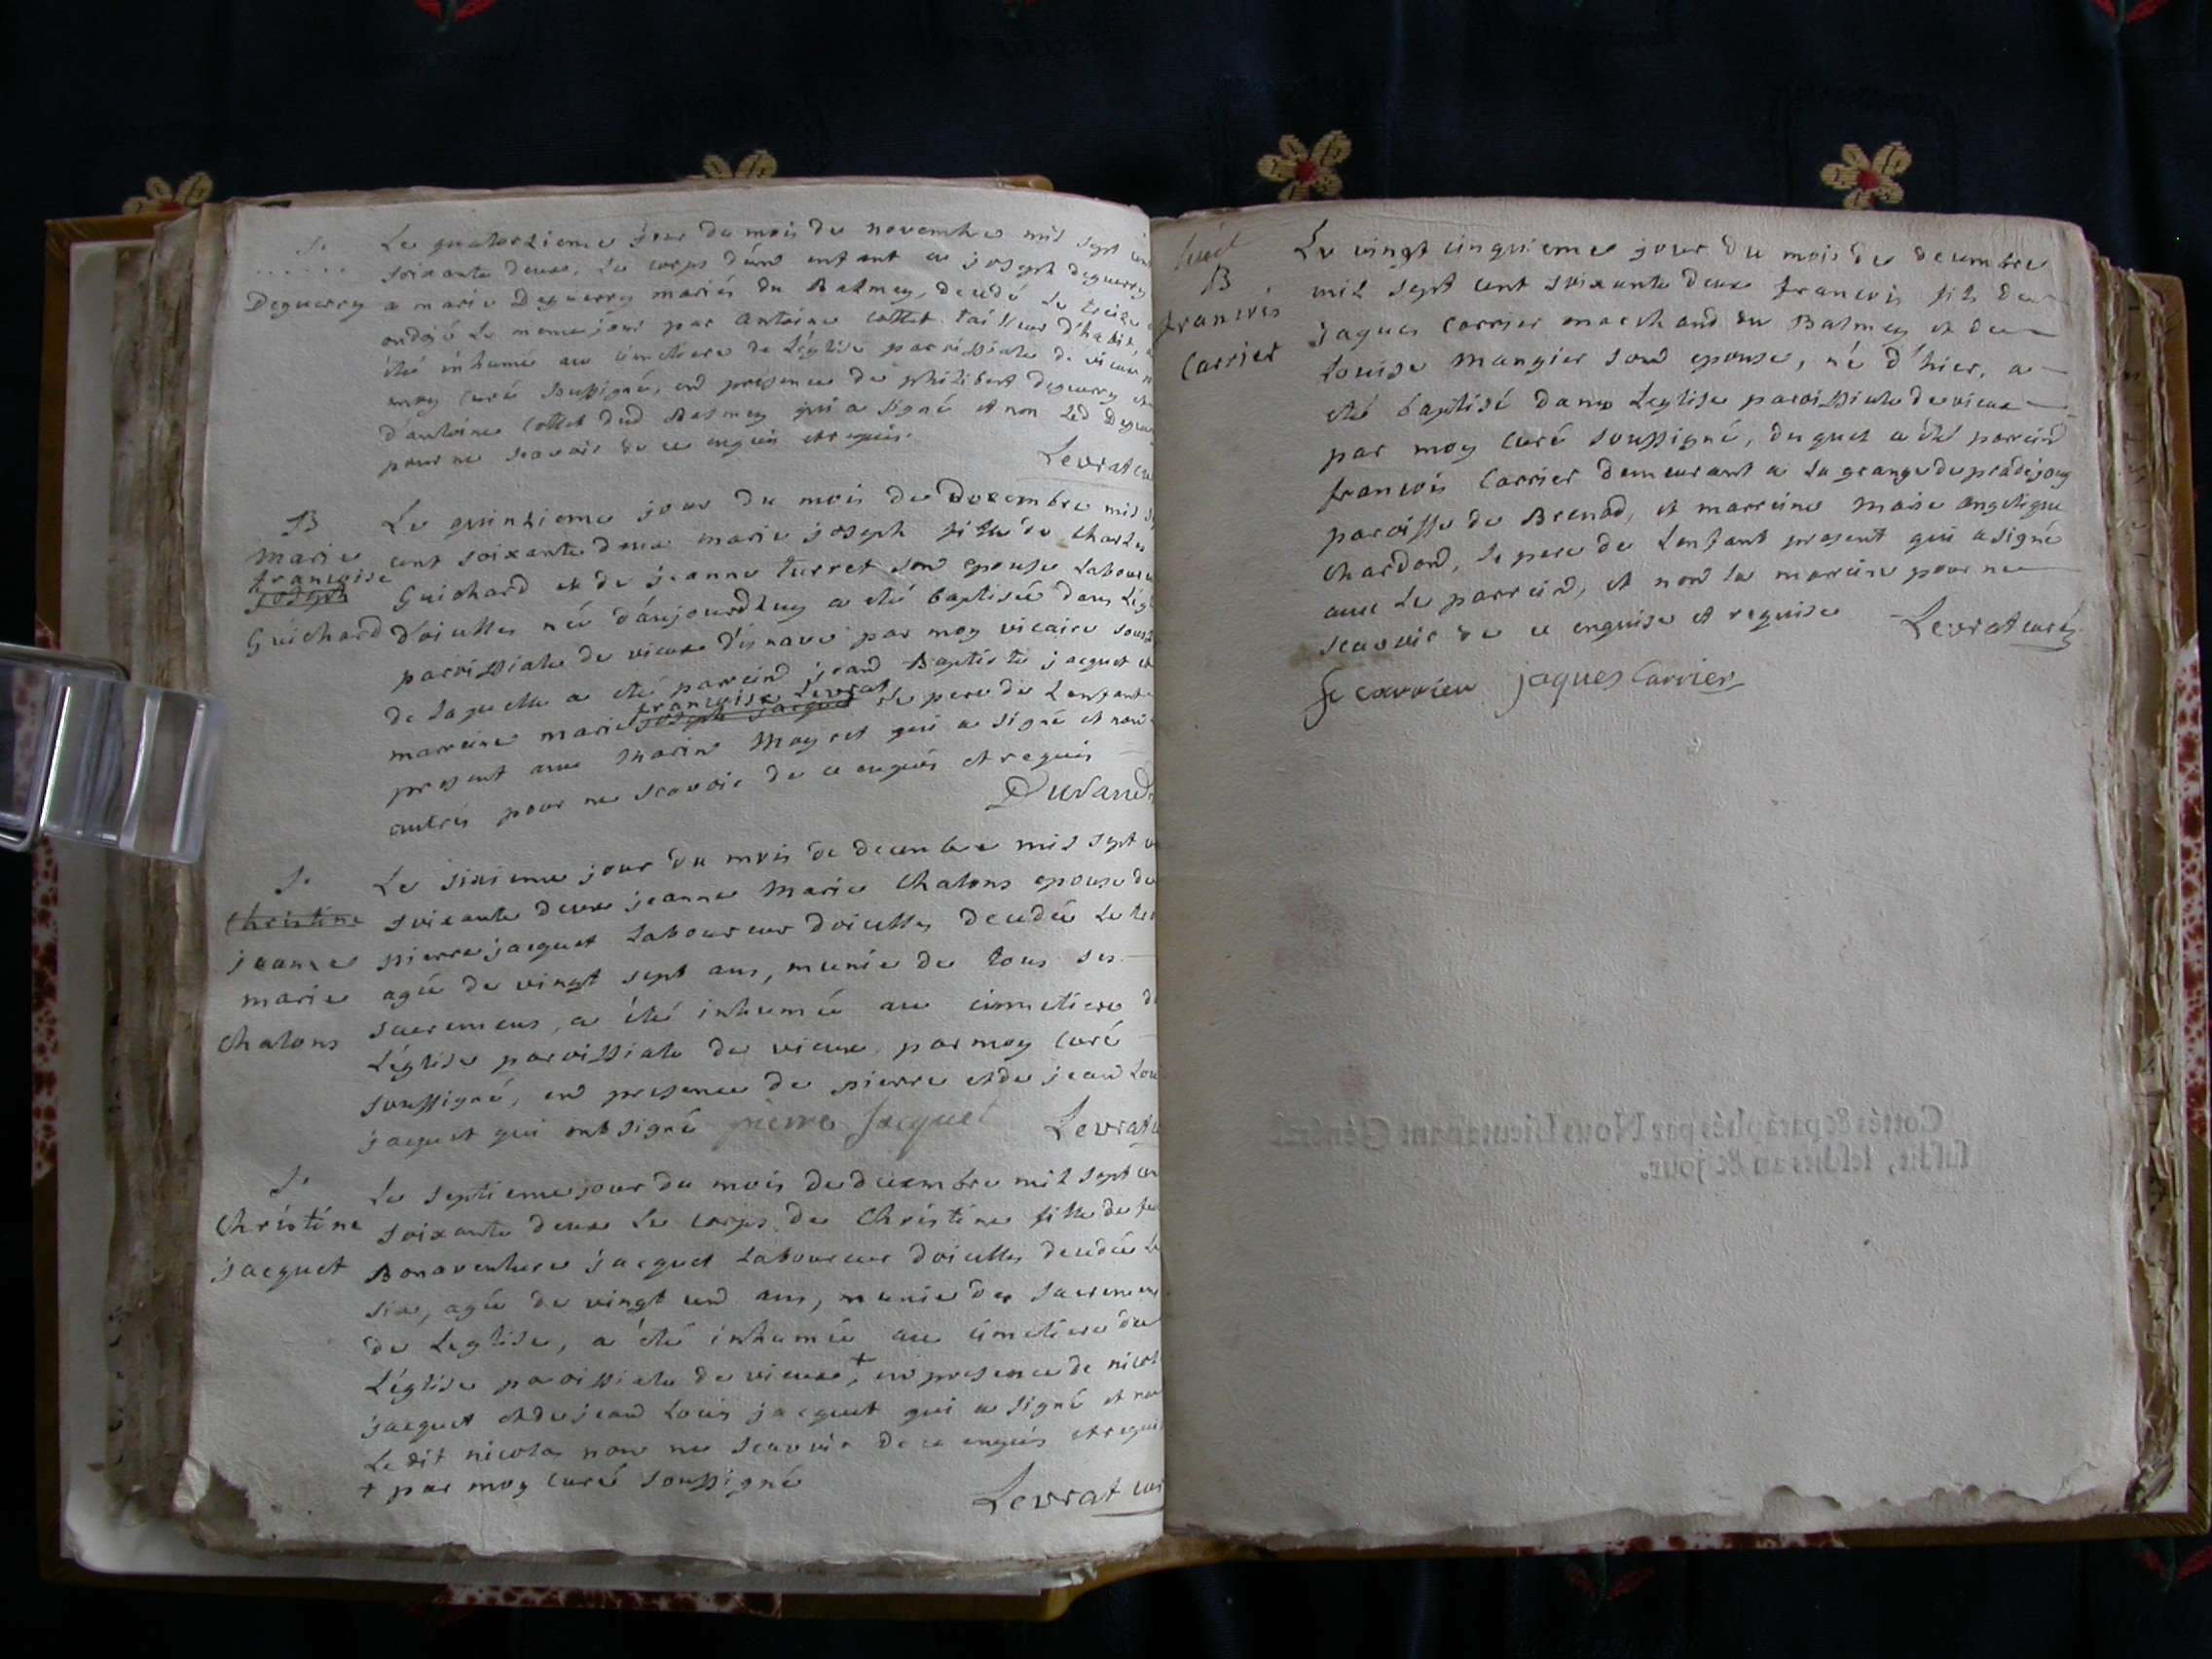 S.
Deguerry
Le quatorzieme jour du mois de novembre mil sept cent
soixante deux, Le corps d'un enfant a joseph deguerry
a marie Deguerry mariés du Balmey, decedé Le treize
ondoyé Le meme jour par antoine Collet tailleur d'habit, a
été inhumé au cimetiere de L'église paroissiale de vieux
moy curé soussigné, en presence de philibert deguerry et
d'antoine Collet dud Balmey qui a signé et non Led Deguerry
pour ne scavoir de ce enquis et requis.
Levrat cu
B
Marie
francoise
joseph
Guichard
Le quinzieme jour du mois de Decembre mil s
cent soixante deux marie joseph fille de Charles
Guichard et de jeanne turret son epouse Laboureu
d'oiselles née d'aujourdhuy a été baptisée dans L'égl
paroissiale de vieux d'isnave par moy vicaire souss
de Laquelle a été parrein jean Baptiste jacquet et
marreine marie francoise Levrat joseph jacquet le pere de Lenfant
present avec marin Mayret qui a signé et non
autres pour ne scavoir de ce enquis et requis
Durand
S.
Christine
jeanne
marie
Chalons
Le sixieme jour du mois de decembre mil sept c
soixante deux jeanne Marie Chalons epouse de
pierre jacquet Laboureur doiselles decedée Le
agée de vingt sept ans, munie de tous ses
sacremens, a été inhumée au cimetiere d
L'église paroissiale de vieux par moy curé
soussigné, en presence de pierre et de jean Lou
jacquet qui ont signé pierre Jacquet Levrat c
S.
Christine
jacquet
Le septieme jour du mois de decembre mil sept cen
soixante deux Le corps de Christine fille de feu
Bonaventure jacquet Laboureur doiselles decedée Le
six, agée de vingt un ans, munie des sacremens
de Leglise, a été inhumée au cimetiere de
L'église paroissiale de vieux, + en presence de nicol
jacquet et de jean Louis jacquet qui a signé et non
Ledit nicolas pour ne scavoir de ce enquis et requis
+ par moy curé soussigné
Levrat cur
B
francois
Carrier
Le vingt cinquieme jour du mois de decembre
mil sept cent soixante deux francois fils de
jaques Carrier marchand du Balmey et de
Louise Mangier son epouse, né d'hier, a
eté baptisé dans Leglise paroissiale de vieux
par moy curé soussigné, duquel a été parrein
francois Carrier demeurant a La grange du pradejoug
paroisse de Brenod, et marreine Marie angelique
Chardon, le pere de Lenfant present qui a signé
avec Le parrein, et non la marreine pour ne
scavoir de ce enquise et requise Levrat curé
fr carrier jaques Carrier
Cottés & paraphés par Nous Lieutenant Général
susdit, lesdits an & jour.